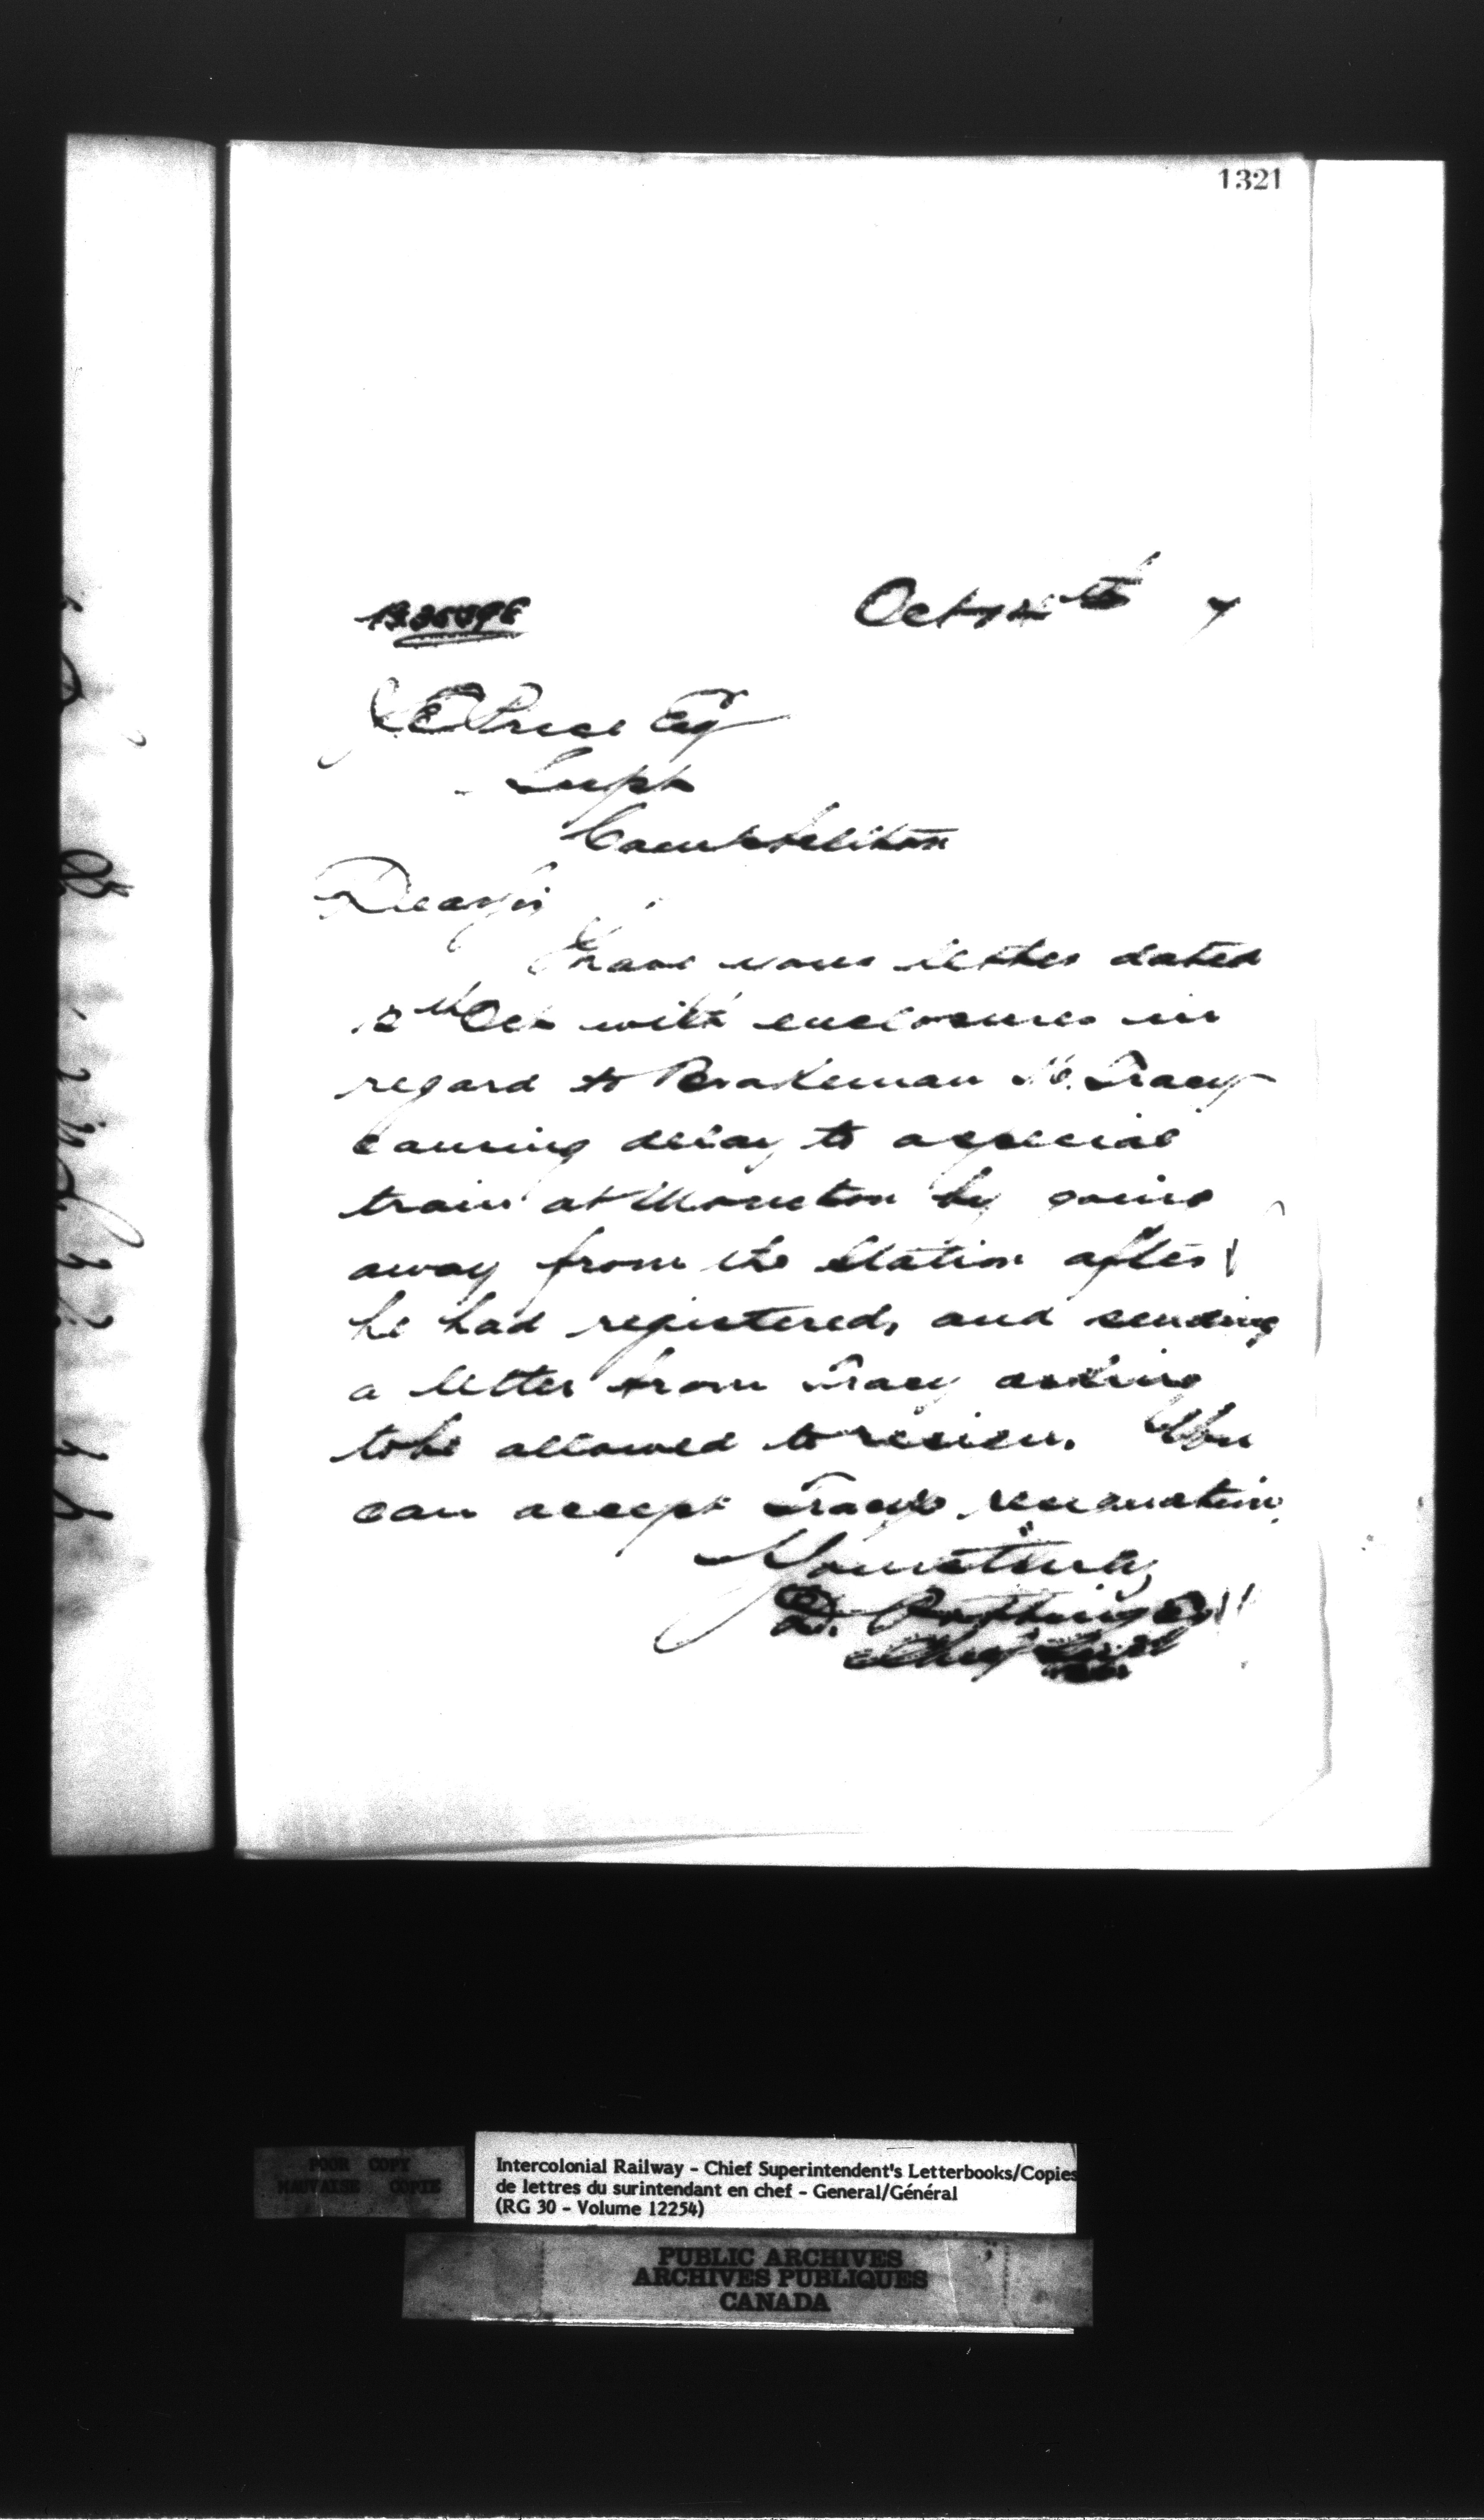 1321
Oct 14th 7
Price Esq
Supt
Campbellton
Dear Sir
I have your letter dated
12th Oct with enclosures in
regard to Brakeman Tracy
causing delay to a special
train at Moncton by going
away from the Station after
he had registered, and sending
a letter from Tracy asking
to be allowed to resign. You
can accept Tracy's resignation.
Yours truly,
D. Pottinger
Chief Supt
POOR COPY
MAUVAISE COPIE
Intercolonial Railway - Chief Superintendent's Letterbooks/Copies
de lettres du surintendant en chef - General/Général
(RG 30 - Volume 12254)
PUBLIC ARCHIVES
ARCHIVES PUBLIQUES
CANADA